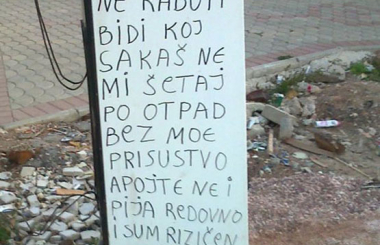 NE RABOTI
BIDI KOJ
SAKAŠ NE
MI ŠETAJ
PO OTPAD
BEZ MOE
PRISUSTVO
APOJTE NE I
PIJA REDOVNO
I SUM RIZIČEN